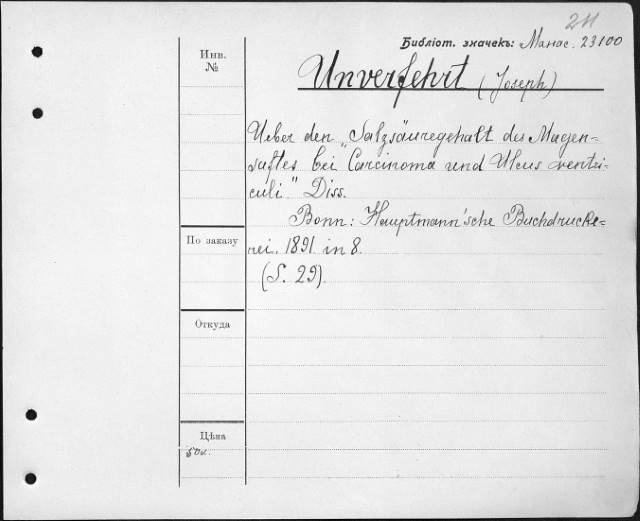 24
Библіот. значекъ: Манас. 23100
Инв.
№
Unverfehrt (Joseph)
Ueber den „Salzsäuregehalt des Magen-
saftes bei Carcinoma und Ulcus ventri-
culi." Diss.
Bonn: Hauptmann'sche Buchdrucke-
rei. 1891. in 8.
(S. 29).
По заказу
Откуда
Цѣна
50к.